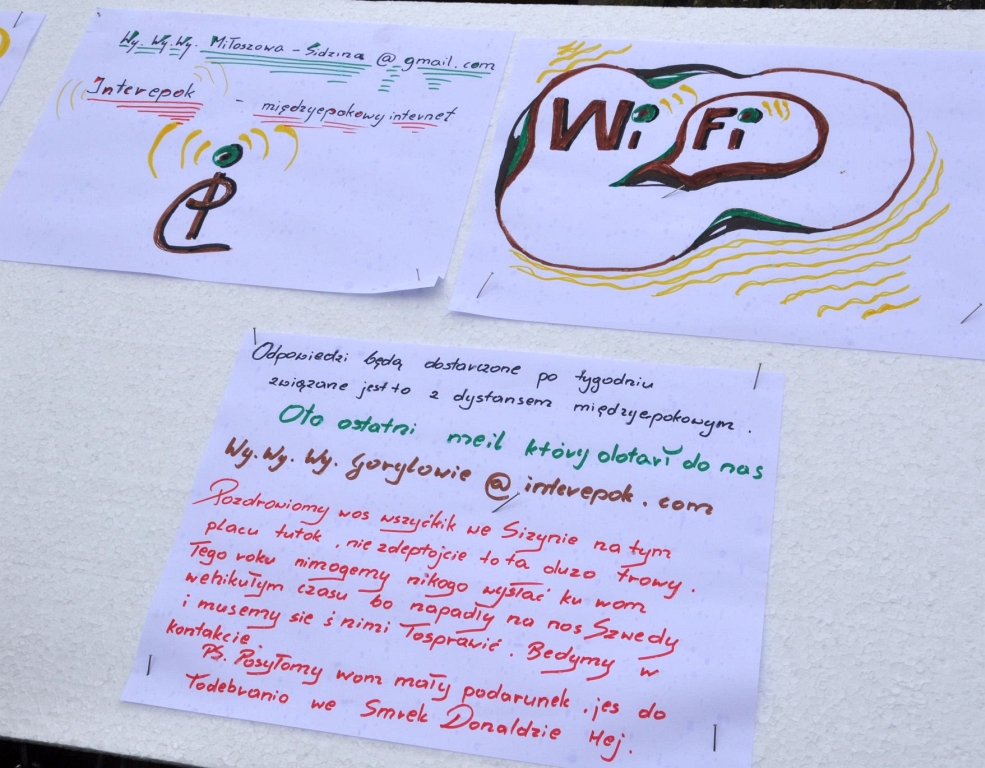 Wy. Wy. Wy. Miłoszowa - Sidzina @ gmail.com
Interepok - międzyepokowy internet
WiFi
Odpowiedzi będą dostarczone po tygodniu
związane jest to z dystansem międzyepokowym.
Oto ostatni meil który dotarł do nas
Wy. Wy. Wy. Gorylowie @ interepok.com
Pozdrowiomy wos wszyćkik we Sizynie na tym
placu tutok, nie zdeptojcie to ta duzo trowy.
Tego roku nimogemy nikogo wysłać ku wom
wehikułym czasu bo napadły na nos Szwedy
i musemy sie ś nimi Tosprawić. Bedymy w
kontakcie.
PS. Posyłomy wom mały podarunek, jes do
Todebranio we Smrek Donaldzie Hej.